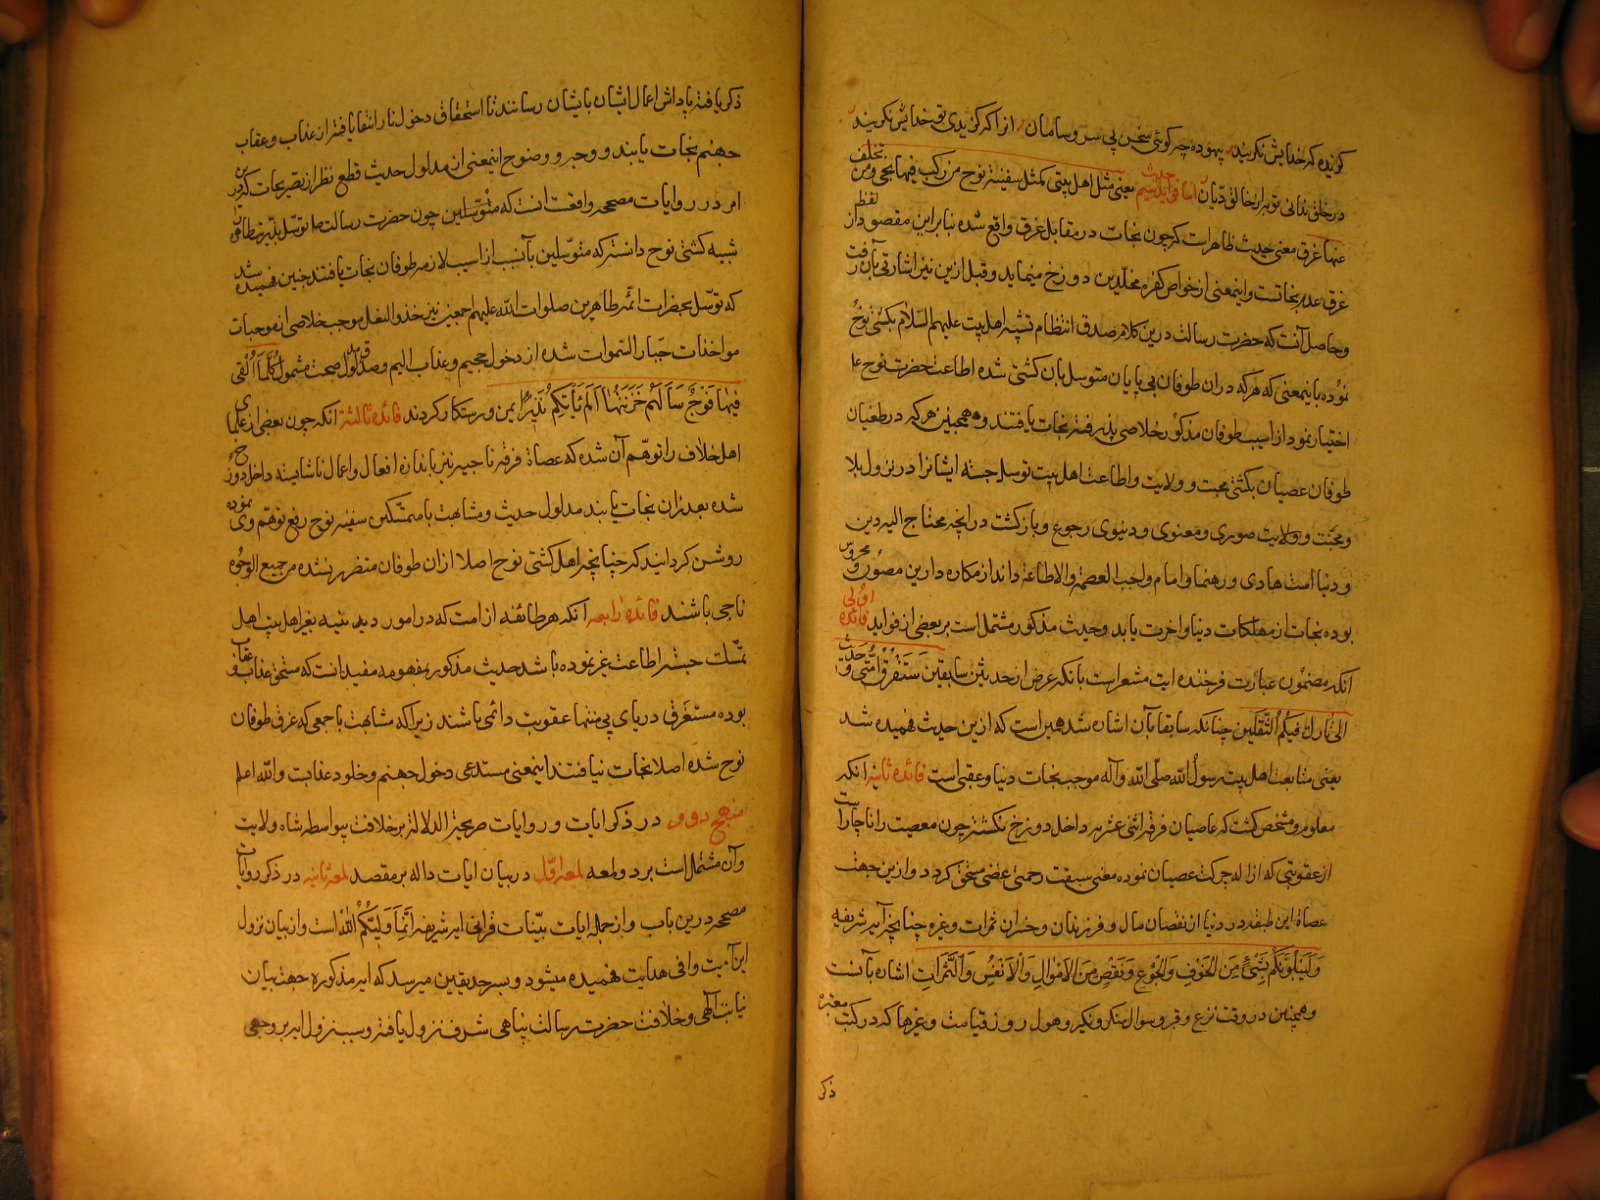 گزیده که خدایش نگزیند بیهوده چه گوئی سخن بی سر و سامان انرا که گزیدی تو خدایش نگزیند
در خلق ندانی تو بر از خالق دیان اما فواید حدیث سیم یعنی مثل اهل بیتی کمثل سفینة نوح من رکب فیها نجی ومن تخلف
عنها غرق معنی حدیث ظاهر است که چون نجات در مقابل غرق واقع شده بنابراین مقصود از لفظ
غرق عدم نجاتست و اینمعنی از خواص کفره مخلدین دوزخ مینماید و قبل ازین نیز اشارتی بان رفت
و حاصل آنست که حضرت رسالت درین کلام صدق انتظام تشبیه اهل بیت علیهم السلام بکشتی نوح
نموده باینمعنی که هر که در ان طوفان بی پایان متوسل بان کشتی شده اطاعت حضرت نوح ع
اختیار نمود از آسیب طوفان مذکور خلاصی پذیرفته نجات یافتند و همچنین هر که در طغیان
طوفان عصیان بکشتی محبت و ولایت و اطاعت اهل بیت توسل جسته ایشانرا در نزول بلا
و محبت و ولایت صوری و معنوی و دنیوی رجوع و بازگشت در انچه محتاج الیه دین
و دنیا است هادی و رهنما و امام واجب العصمة والاطاعة داند از مکاره دارین مصون و محروس
بوده نجات از مهلکات دنیا و اخرت یابد و حدیث مذکور مشتمل است بر بعضی از فواید فائده اولی
انکه مضمون عبارت فرخنده ایت مشعر است بانکه غرض از حدیثین سابقین ستفرق امتی و حدیث
انی تارك فیکم الثقلین چنانکه سابقا بآن اشاره شد همین است که ازین حدیث فهمیده شد
یعنی متابعت اهل بیت رسول الله صلی الله وآله موجب نجات دنیا و عقبی است فائده ثانیه انکه
معلوم و مشخص گشت که عاصیان فرقه اثنی عشریه داخل دوزخ نگشته چون معصیت را ناچار است
از عقوبتی که ازاله چرکت عصیان نموده معنی سبقت رحمتی غضبی متحقق گردد و ازین جهت
عصاة این طبقه در دنیا از نقصان مال و فرزندان و خسران ثمرات وغیره چنانچه آیه شریفه
وَلَنَبْلُوَنَّكُمْ بِشَیْءٍ مِنَ الْخَوْفِ وَالْجُوعِ وَنَقْصٍ مِنَ الْاَمْوَالِ وَالْاَنْفُسِ وَالثَّمَرَاتِ اشاره بآنست
و همچنین در وقت نزع و قبر و سوال منکر و نکیر و هول روز قیامت وغیرها که در کتب معتبره
ذکر
ذکر یافته پاداش اعمال ایشان بایشان رسانند تا استحقاق دخول نار انتفا یافته از عذاب و عقاب
جهنم نجات یابند و وجه و وضوح اینمعنی از مدلول حدیث قطع نظر از تصریحات که درین
امر در روایات مصححه واقعست انست که متوسلین چون حضرت رسالت ما توسل بذیل
شبیه کشتی نوح دانسته که متوسلین بآنسبب از آسیب لازمه طوفان نجات یافتند چنین فهمیده شد
که توسل بحضرات ائمه طاهرین صلوات الله علیهم اجمعین نیز حذو النعل موجب خلاصی از موجبات
مواخذات جبار السموات شده از دخول جحیم و عذاب الیم و صدق مدلول صحت مشمول كُلَّمَا اُلْقِیَ
فِیهَا فَوْجٌ سَاَلَهُمْ خَزَنَتُهَا اَلَمْ یَاْتِكُمْ نَذِیرٌ ایمن و رستگار کردند فائده ثالثه انکه چون بعضی از علمای
اهل خلاف را توهم آن شده که عصاة فرقه ناجیه نیز باندازه افعال و اعمال ناشایسته داخل دوزخ
شده بعد از ان نجات یابند مدلول حدیث و مشابهت با متمسکین سفینه نوح رفع توهم وی نموده
روشن گردانید که چنانچه اهل کشتی نوح اصلا ازان طوفان متضرر نشده من جمیع الوجوه
ناجی باشند فائده رابعه انکه هر طائفه از امت که در امور دینیه بغیر اهل بیت اهل
تمسک جسته اطاعت غیر نموده باشد حدیث مذکور بمفهومه مفید انست که مستحق عذاب و عقاب
بوده مستغرق دریای بی منتها عقوبت دائمی باشند زیرا که مشابهت با جمعی که غرق طوفان
نوح شده اصلا نجات نیافتند اینمعنی مستدعی دخول جهنم و خلود عذابست والله اعلم
منهج دوم در ذکر ایات و روایات صریحة الدلالة بر خلافت بیواسطه شاه ولایت
و آن مشتمل است بر دو لمعه لمعه اول در بیان ایات داله بر مقصد لمعه ثانیه در ذکر روایات
مصححه درین باب و از جمله ایات بینات قرانی ایه شریفه اِنَّمَا وَلِیُّكُمُ اللّٰهُ است و از بیان نزول
این آیت وافی هدایت فهمیده میشود و بسرحد یقین میرسد که ایه مذکوره جهت بیان
نیابت الهی و خلافت حضرت رسالت پناهی شرف نزول یافته و سبب نزول ایه بر وجهی